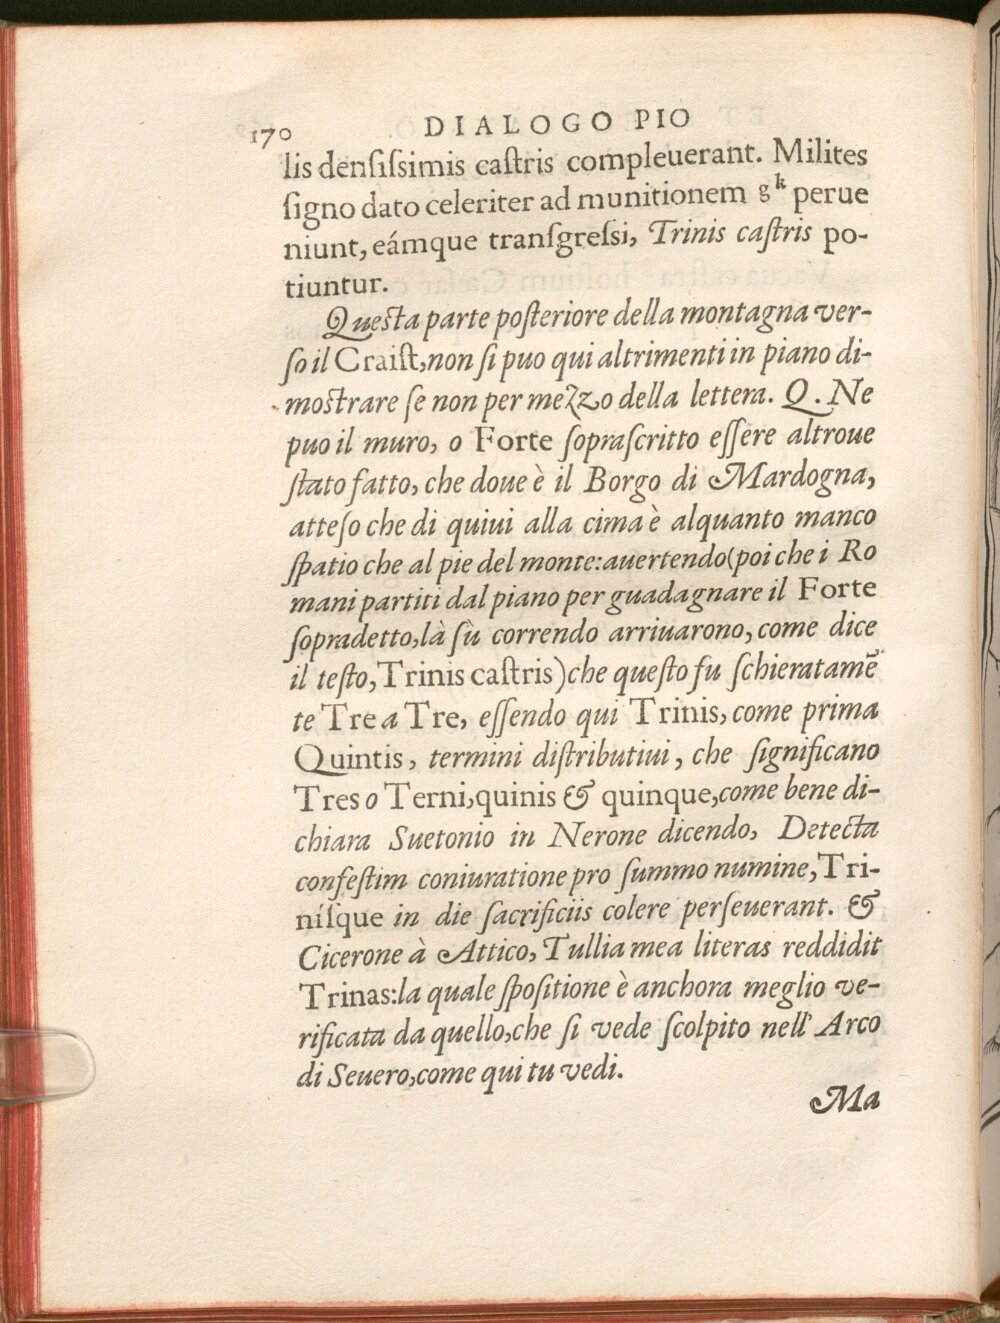 170 DIALOGO PIO
lis densissimis castris compleuerant. Milites
signo dato celeriter ad munitionem gk perue
niunt, eámque transgressi, Trinis castris po-
tiuntur.
Questa parte posteriore della montagna ver-
so il Craist, non si puo qui altrimenti in piano di-
mostrare se non per mezzo della lettera. Q. Ne
puo il muro, o Forte soprascritto essere altroue
stato fatto, che doue è il Borgo di Mardogna,
atteso che di quiui alla cima è alquanto manco
spatio che al pie del monte: auertendo (poi che i Ro
mani partiti dal piano per guadagnare il Forte
sopradetto, là sù correndo arriuarono, come dice
il testo, Trinis castris) che questo fu schieratamē
te Tre a Tre, essendo qui Trinis, come prima
Quintis, termini distributiui, che significano
Tres o Terni, quinis & quinque, come bene di-
chiara Suetonio in Nerone dicendo, Detecta
confestim coniuratione pro summo numine, Tri-
nisque in die sacrificiis colere perseuerant. &
Cicerone à Attico, Tullia mea literas reddidit
Trinas: la quale spositione è anchora meglio ve-
rificata da quello, che si vede scolpito nell' Arco
di Seuero, come qui tu vedi.
Ma